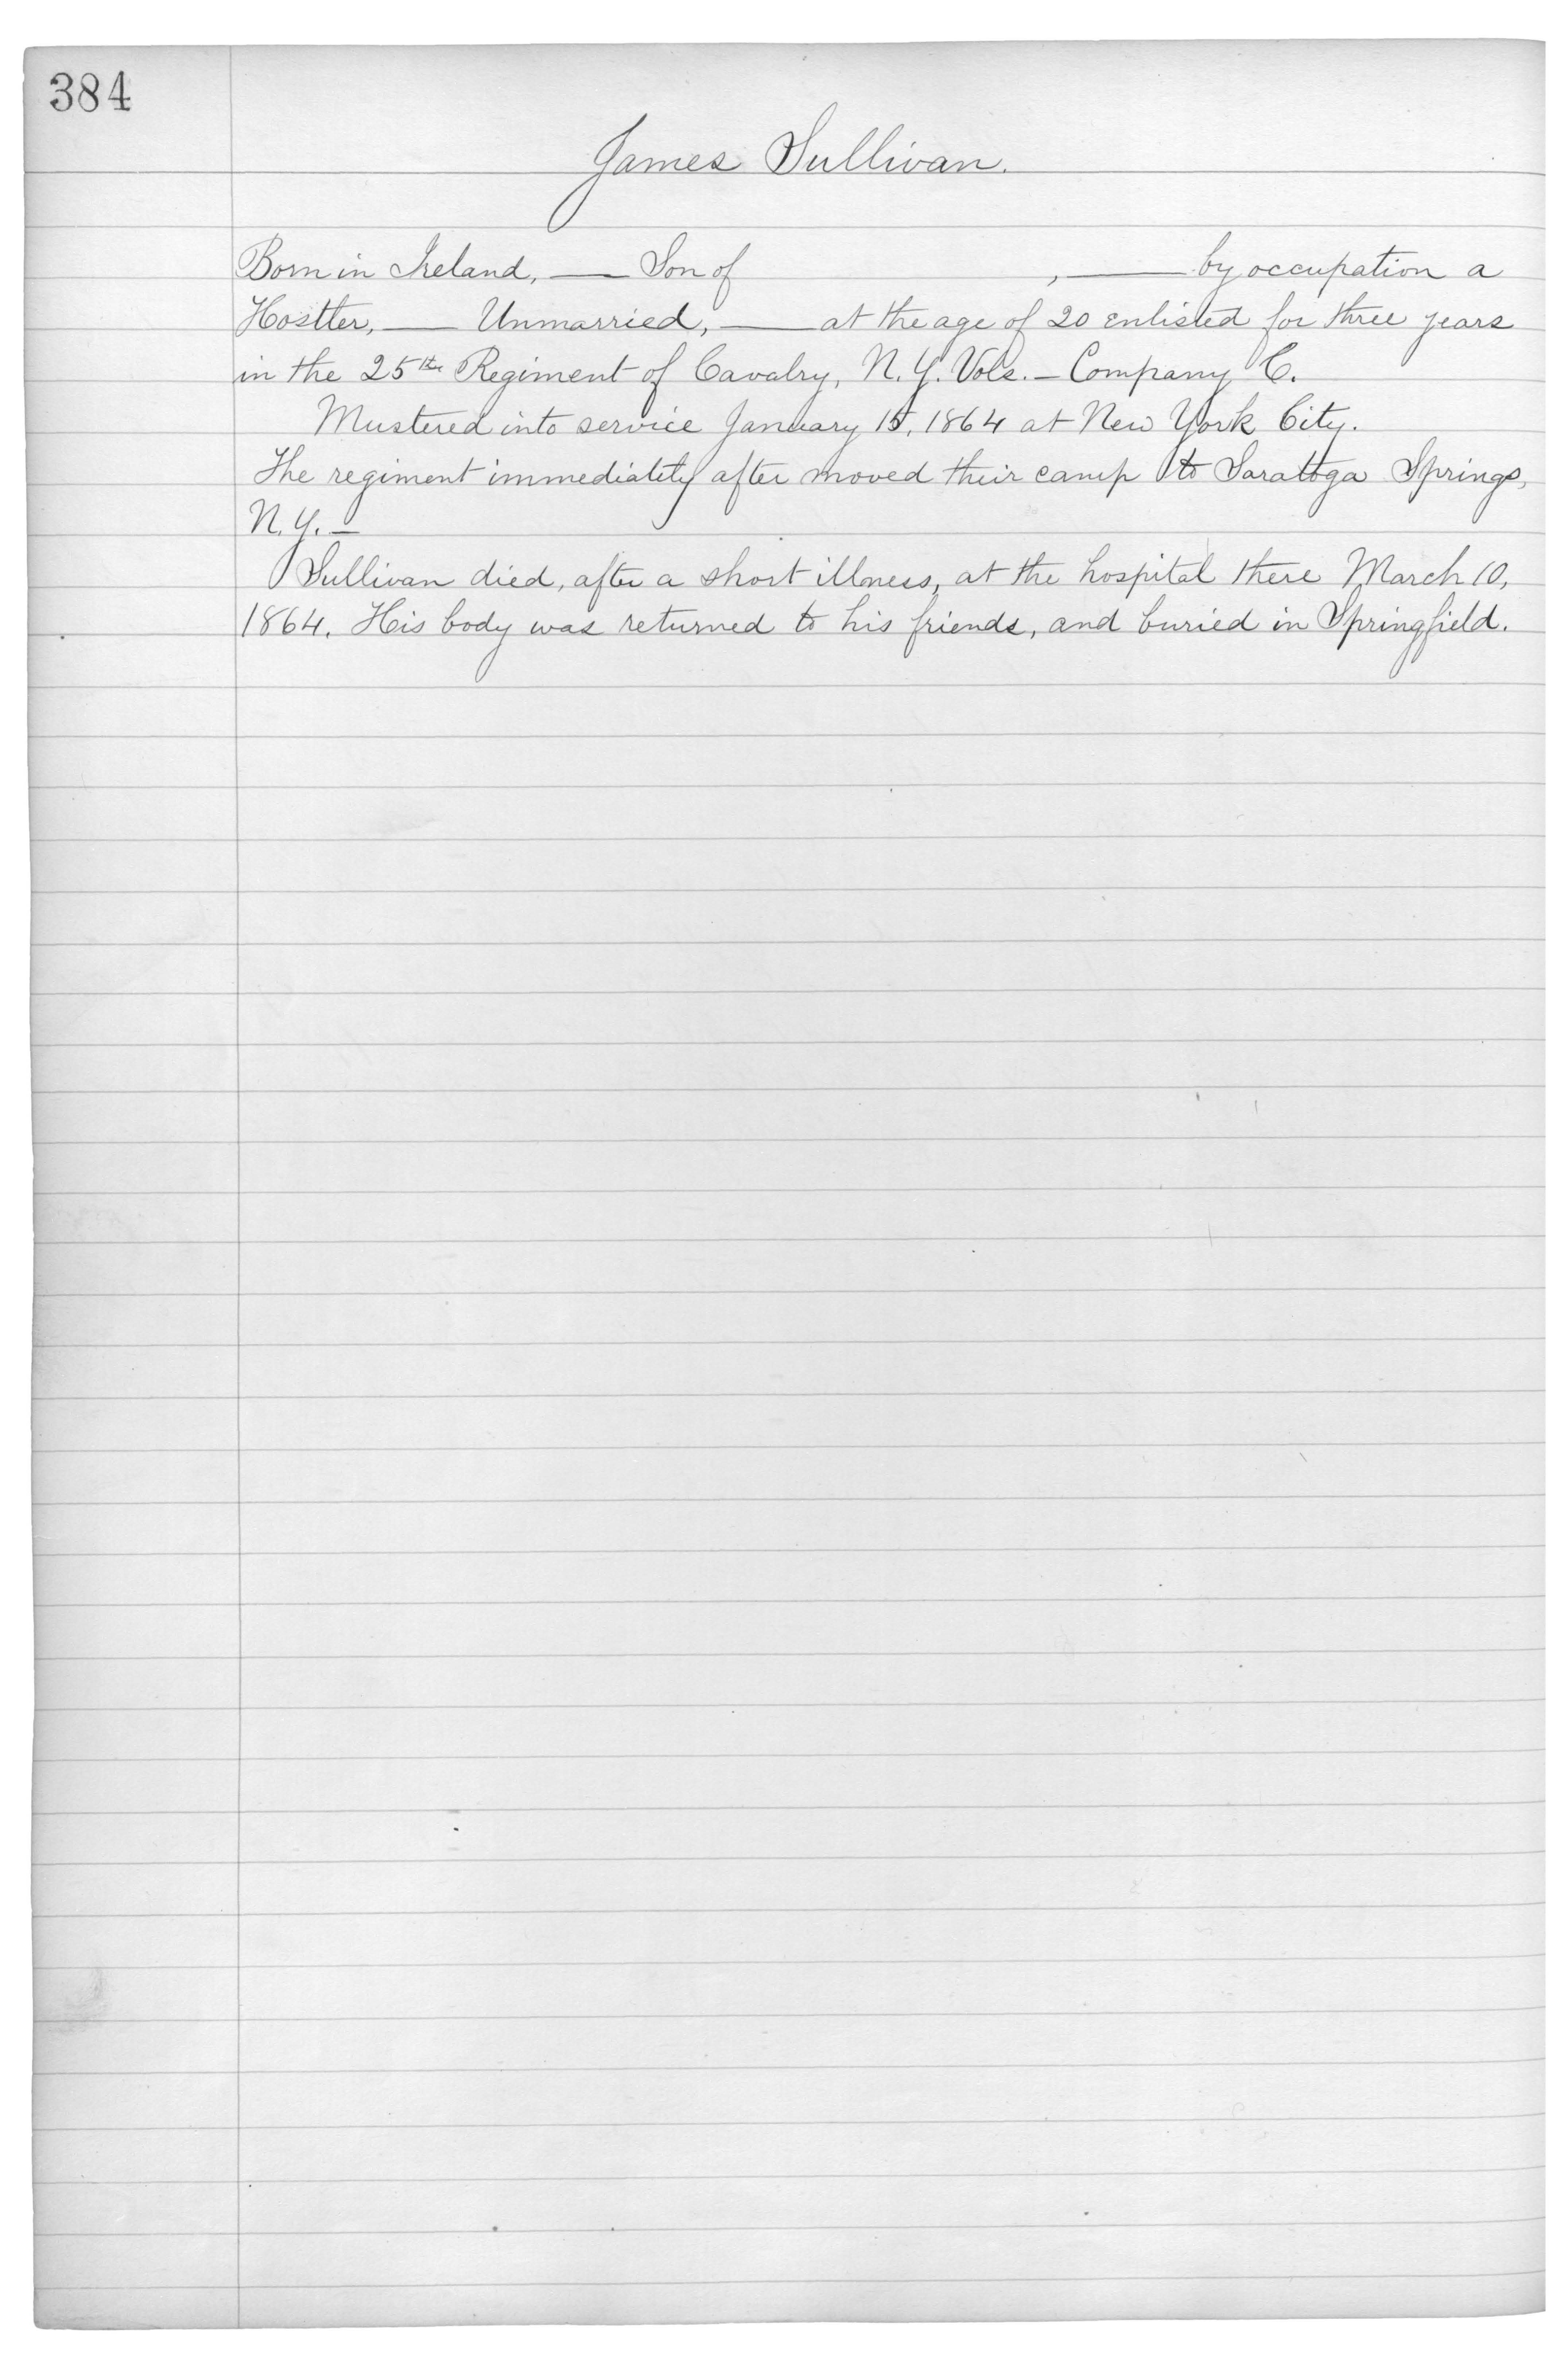 384
James Sullivan.
Born in Ireland, — Son of , — by occupation a
Hostler, — Unmarried, — at the age of 20 enlisted for three years
in the 25th Regiment of Cavalry, N.Y. Vols. — Company C.
Mustered into service January 15, 1864 at New York City.
The regiment immediately after moved their camp to Saratoga Springs,
N.Y. —
Sullivan died, after a short illness, at the hospital there March 10,
1864. His body was returned to his friends, and buried in Springfield.